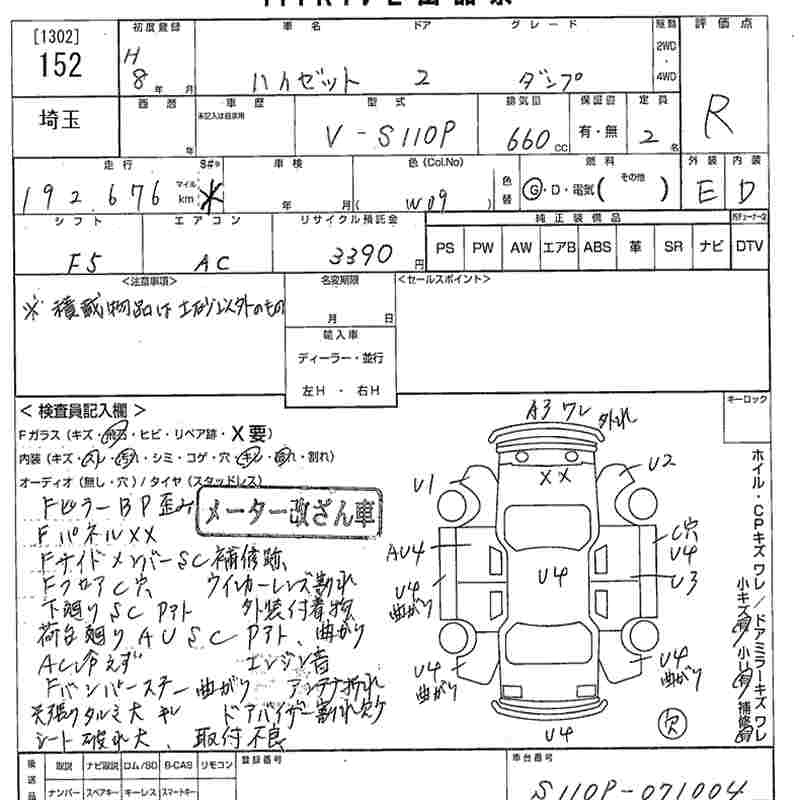 [1302]
152
埼玉
初度登録
H
8年 月
車名
ハイゼット
ドア
2
グレード
ダンプ
駆動
2WD
・
4WD
評価点
R
西暦
年
車歴
未記入は自家用
型式
V-S110P
排気量
660
CC
保証書
有・無
定員
2
名
走行
192,676
マイル
km
S#*
*
車検
年 月
色(Col.No)
( W09 )
色替
燃料
G・D・電気( その他 )
外装
E
内装
D
シフト
F5
エアコン
AC
リサイクル預託金
3390
円
純正装備品
PS PW AW エアB ABS 革 SR ナビ DTV
<注意事項>
※積載物品はエンジン以外のもの
名変期限
月 日
輸入車
ディーラー・並行
左H ・ 右H
<セールスポイント>
キーロック
<検査員記入欄>
Fガラス(キズ・飛石・ヒビ・リペア跡・X要)
内装(キズ・スレ・汚れ・シミ・コゲ・穴・キレ・破れ・割れ)
オーディオ(無し・穴)/タイヤ(スタッドレス)
FピラーBP歪み
メーター改ざん車
FパネルXX
FサイドメンバーSC補修跡
FフロアC穴 ウインカーレンズ割れ
下廻りSC Pアト 外装付着物
荷台廻りAUSC Pアト、曲がり
AC冷えず エンジン音
Fバンパーステー曲がり アンテナ折れ
天張りタルミ大 キレ ドアバイザー割れ欠ケ
シート破れ大、取付不良
A3 ワレ 外れ
XX
U1
U2
AU4
U4
曲がり
U4
C穴
U4
U3
U4
曲がり
U4
曲がり
U4
欠
ホイル・CPキズ ワレ/ドアミラーキズ ワレ
後送品
取説 ナビ取説 ロム/SD B-CAS リモコン
ナンバー スペアキー キーレス スマートキー
登録番号
車台番号
S110P-071004